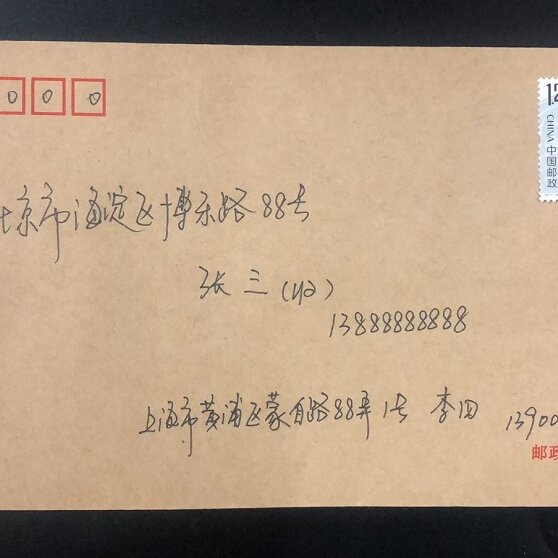 0 0 0
1.2
CHINA 中国邮政
北京市海淀区博乐路88号
张三(收)
13888888888
上海市黄浦区蒙自路88弄1号 李四 13900
邮政